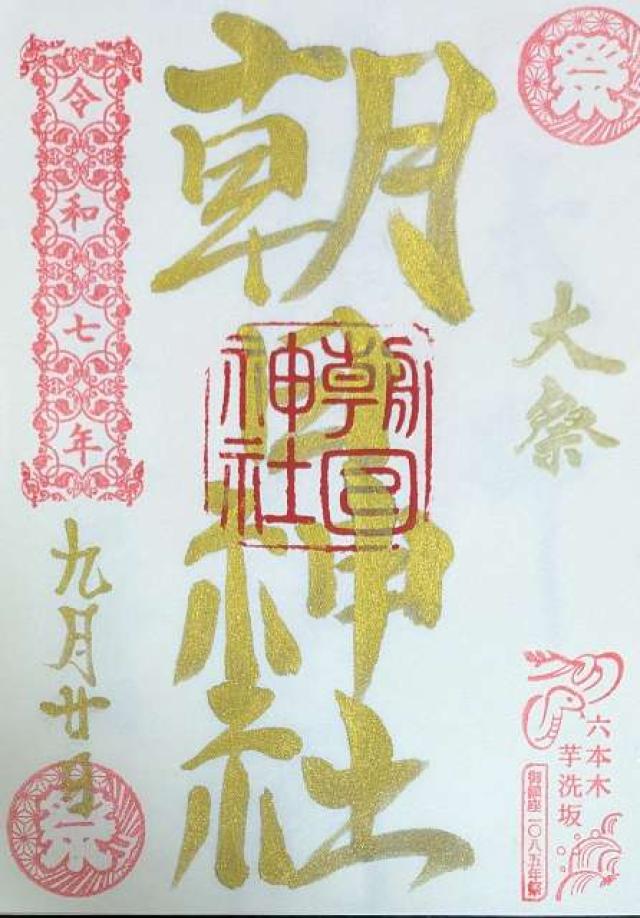 祭
大祭
六本木
芋洗坂
御鎮座一〇八五年祭
朝日神社
朝日
神社
令和七年
九月廿日
祭